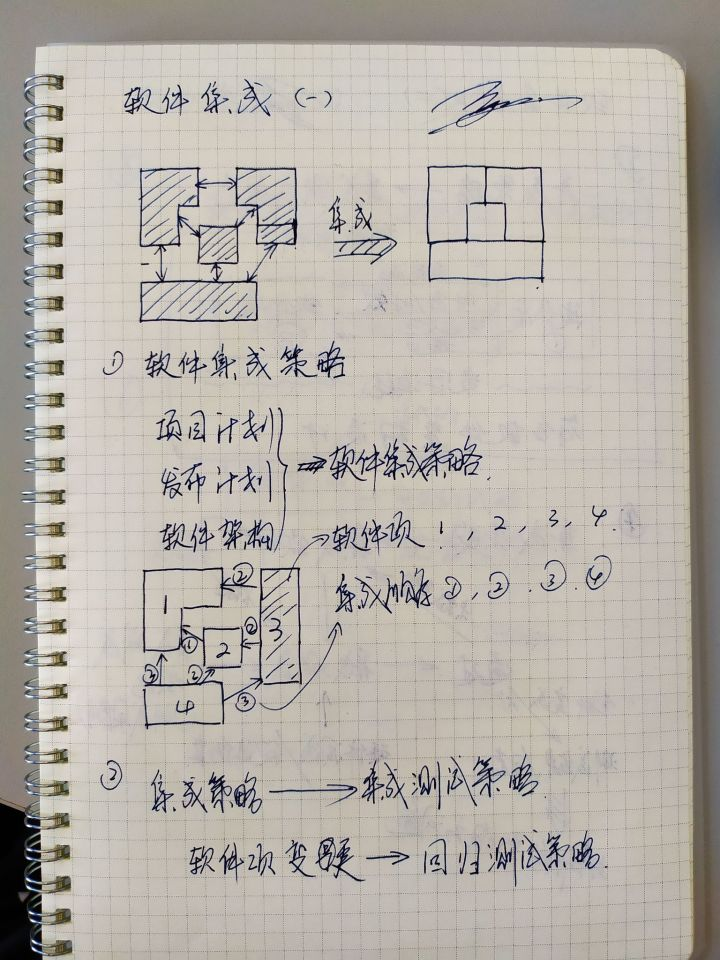 软件集成(一)
集成
① 软件集成策略
项目计划
发布计划
软件架构
⇒软件集成策略.
软件项 1, 2, 3, 4.
集成顺序 ①, ②. ③. ④
1
②
3
①
2
②
③
②
4
③
② 集成策略 → 集成测试策略.
软件项变更 → 回归测试策略.